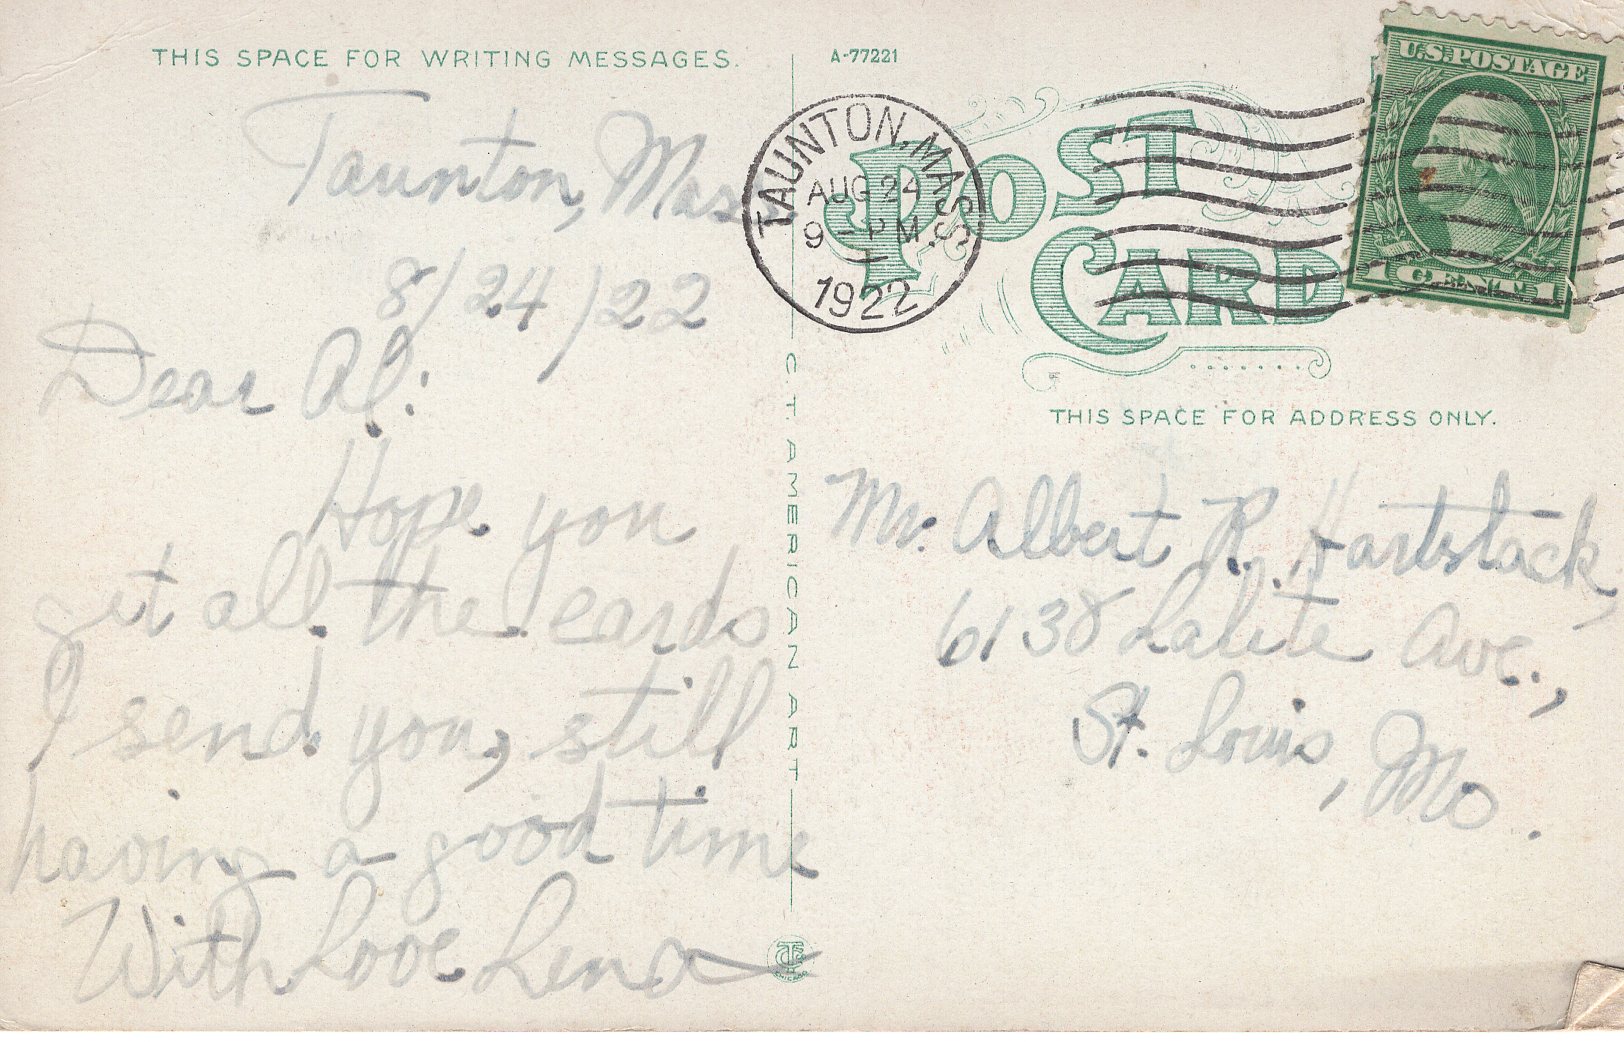 THIS SPACE FOR WRITING MESSAGES.
Taunton, Mass
8/24/22
Dear Al:
Hope you
get all the cards
I send you, still
having a good time
With Love Lena
C. T. AMERICAN ART
CHICAGO
A-77221
TAUNTON, MASS.
AUG 24
9 - PM
1922
POST
CARD
U.S. POSTAGE
1 CENT 1
THIS SPACE FOR ADDRESS ONLY.
Mr. Albert R. Hartstack,
6138 Lalite Ave.,
St. Louis, Mo.